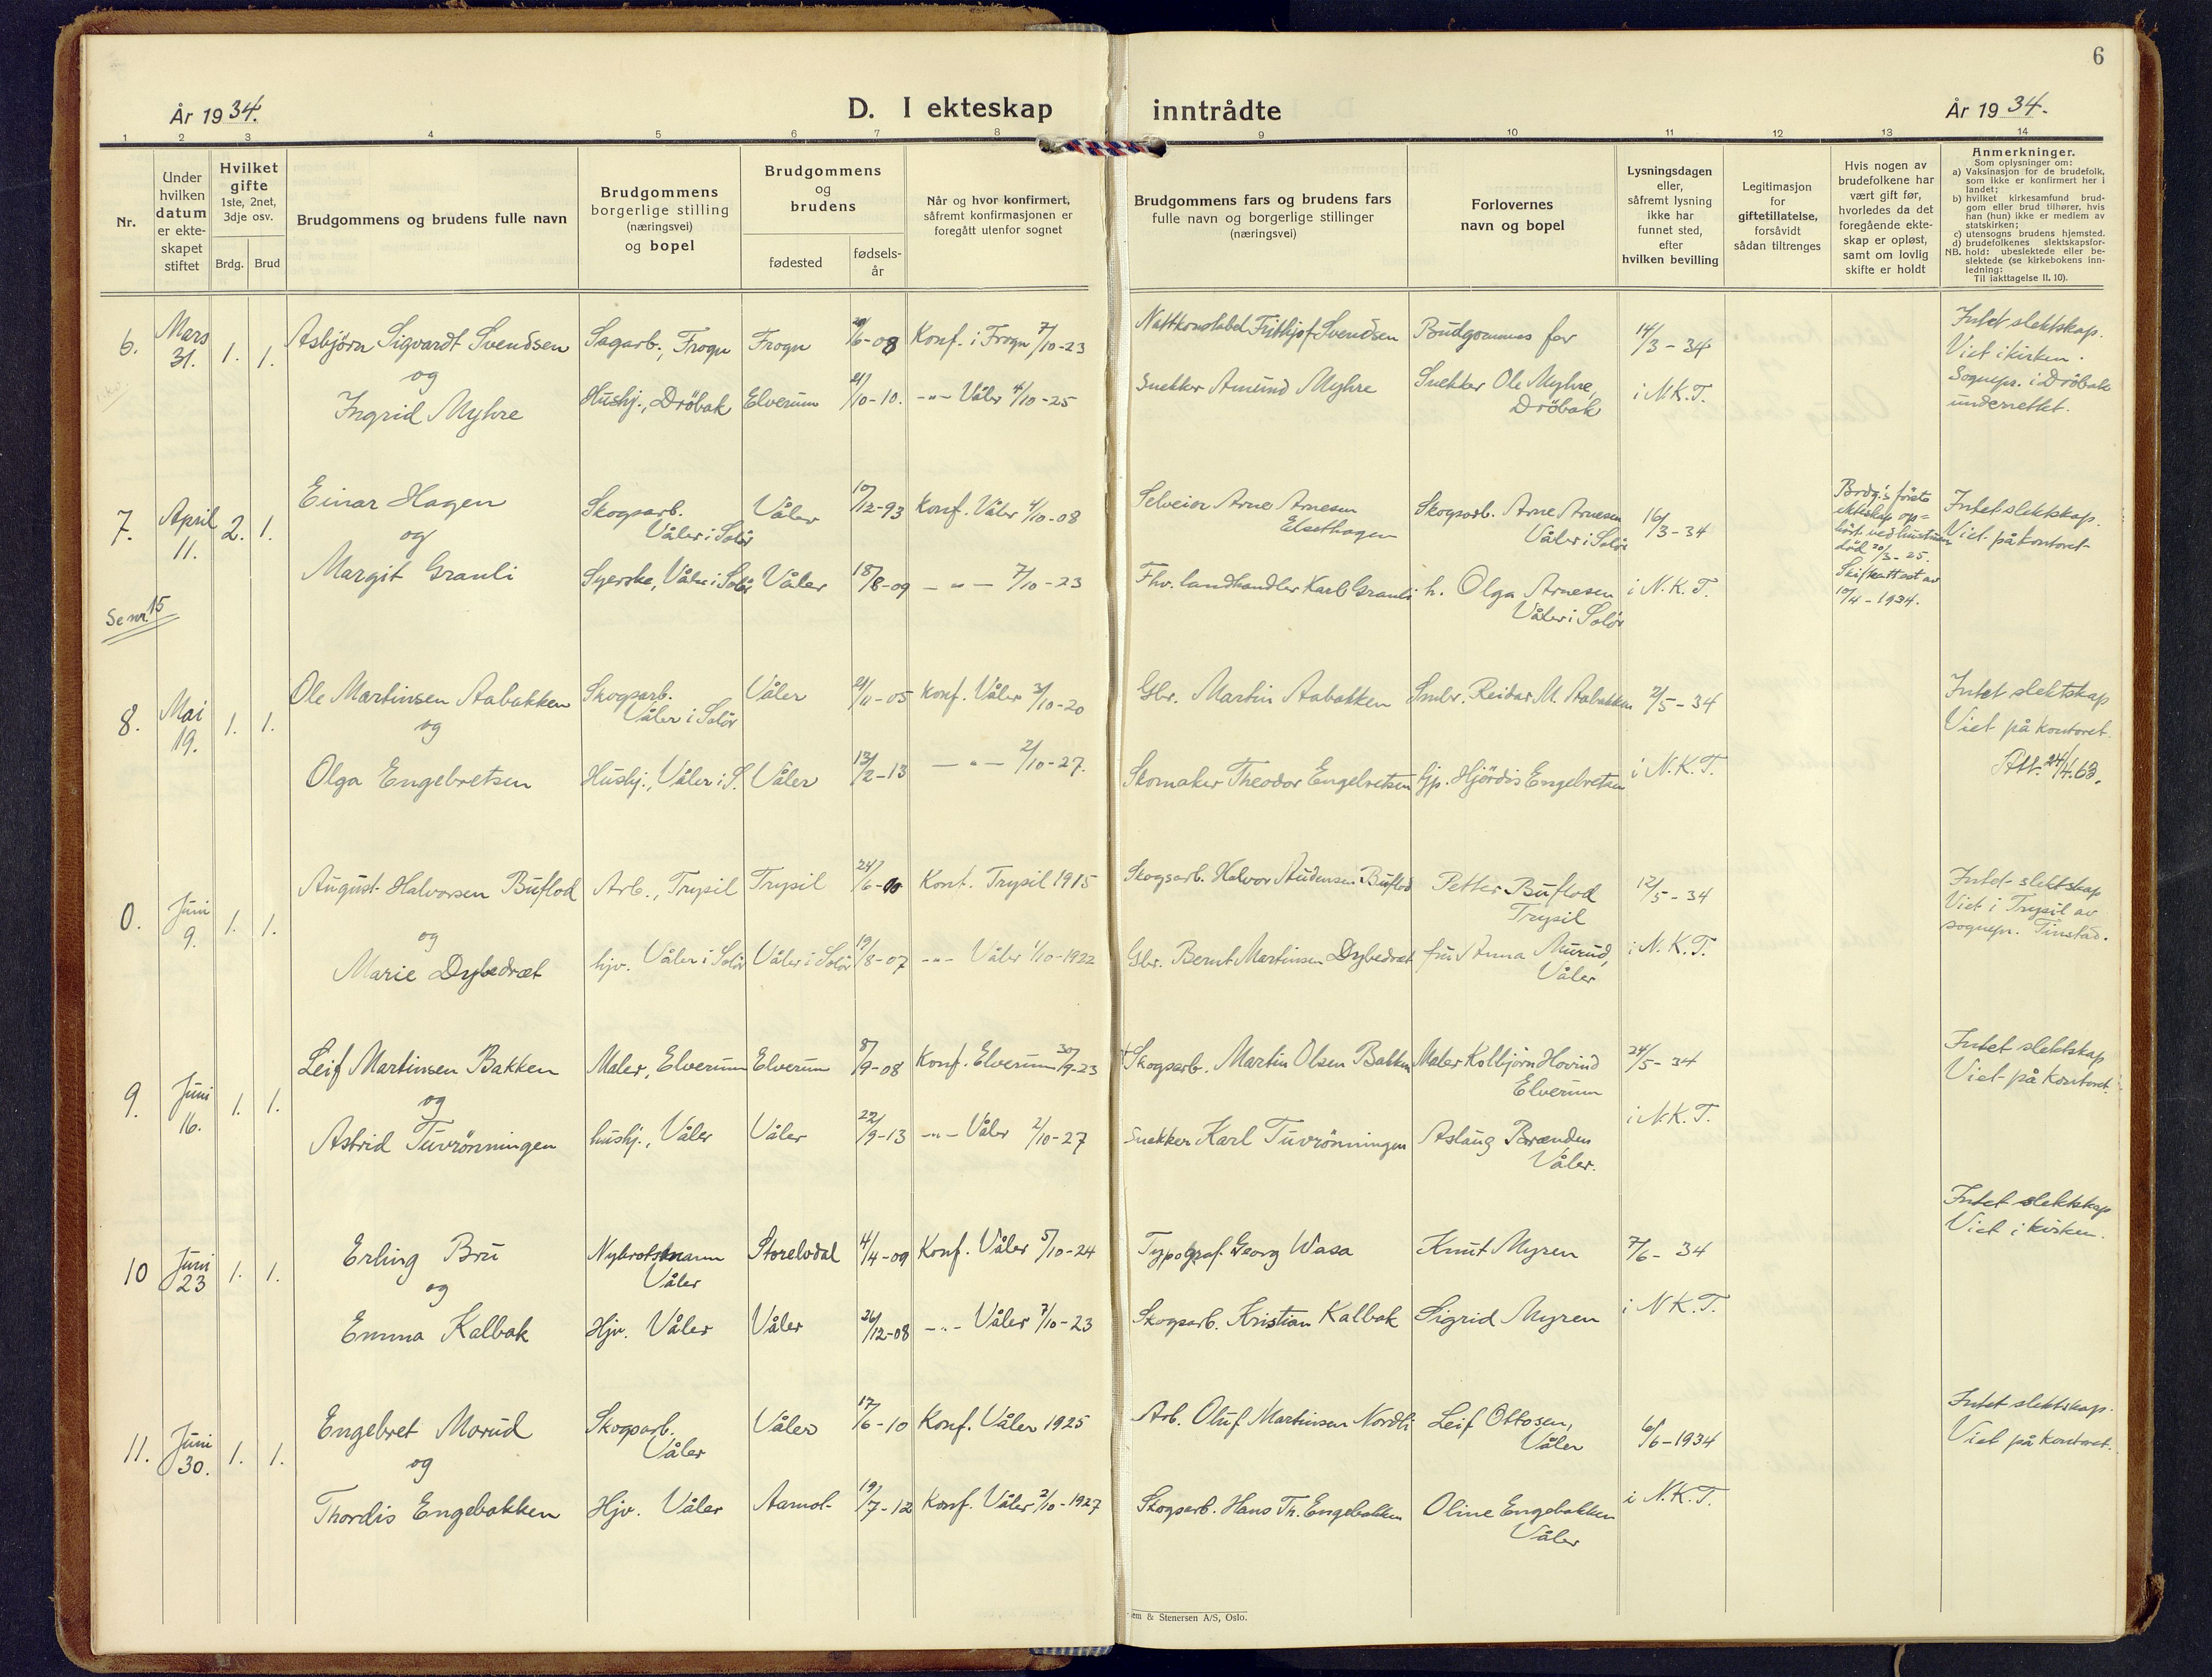 6
År 1934.
D. I ekteskap inntrådte
År 1934.
1 2 3 4 5 6 7 8 9 10 11 12 13 14
Nr.
Under
hvilken
datum
er ekte-
skapet
stiftet
Hvilket
gifte
1ste, 2net,
3dje osv.
Brdg. Brud
Brudgommens og brudens fulle navn
Brudgommens
borgerlige stilling
(næringsvei)
og bopel
Brudgommens
og
brudens
fødested
fødsels-
år
Når og hvor konfirmert,
såfremt konfirmasjonen er
foregått utenfor sognet
Brudgommens fars og brudens fars
fulle navn og borgerlige stillinger
(næringsvei)
Forlovernes
navn og bopel
Lysningsdagen
eller,
såfremt lysning
ikke har
funnet sted,
efter
hvilken bevilling
Legitimasjon
for
giftetillatelse,
forsåvidt
sådan tiltrenges
Hvis nogen av
brudefolkene har
vært gift før,
hvorledes da det
foregående ekte-
skap er opløst,
samt om lovlig
skifte er holdt
Anmerkninger.
Som oplysninger om:
a) Vaksinasjon for de brudefolk,
som ikke er konfirmert her i
landet;
b) hvilket kirkesamfund brud-
gom eller brud tilhører, hvis
han (hun) ikke er medlem av
statskirken;
c) utensogns brudens hjemsted.
d) brudefolkenes slektskapsfor-
NB. hold: ubeslektede eller be-
slektede (se kirkebokens inn-
ledning:
Til iakttagelse II. 10).
6.
Mars
31.
1. 1.
Asbjörn Sigvardt Svendsen
og
Ingrid Myhre
Sagarb., Frogn
Hushj., Dröbak
Frogn
Elverum
29/6-08
21/10-10.
Konf. i Frogn 7/10-23
-"- Våler 4/10-25
Nattkonstabel Frithjof Svendsen
Snekker Amund Myhre
Brudgommens far
Snekker Ole Myhre,
Dröbak
14/3-34
i N.K.T.
Intet slektskap.
Viet i kirken.
Sognepr. i Dröbak
underrettet.
7.
April
11.
2. 1.
Einar Hagen
og
Margit Granli
Skogsarb.
Våler i Solör
Syerske, Våler i Solör
Våler
Våler
10/12-93
18/8-09
Konf. Våler 4/10-08
- " - 7/10-23
Selveier Arne Arnesen
Elsethagen
Fhv. landhandler Karl Granli
Skogsarb. Arne Arnesen
Våler i Solör
h. Olga Arnesen
Våler i Solör
16/3-34
i N.K.T.
Brdg.'s förste
ektskap op=
hört ved hustruens
död 20/3-25.
Skifteattest av
10/4-1934.
Intet slektskap.
Viet på kontoret.
Se nr. 15
8.
Mai
19.
1. 1.
Ole Martinsen Aabakken
og
Olga Engebretsen
Skogsarb.
Våler i Solör
Hushj., Våler i S.
Våler
Våler
21/11-05
13/2-13
Konf. Våler 3/10-20
- " - 2/10-27.
Gbr. Martin Aabakken
Skomaker Theodor Engebretsen
Smbr. Reidar M. Aabakken
Gp. Hjördis Engebretsen
2/5-34
i N.K.T.
Intet slektskap
Viet på kontoret.
Att. 24/4.63.
0.
Juni
9.
1. 1.
August Halvorsen Buflod
og
Marie Dybedræt
Arb., Trysil
hjv. Våler i Solör
Trysil
Våler i Solör
24/6-00
19/8-07
Konf. Trysil 1915
-"- Våler 1/10-1922
Skogsarb. Halvor Audensen Buflod
Gbr. Bernt Martinsen Dybedræt
Petter Buflod
Trysil
fru Anna Murud,
Våler
12/5-34
i N.K.T.
Intet slektskap
Viet i Trysil av
sognepr. Finstad.
9.
Juni
16.
1. 1.
Leif Martinsen Bakken
og
Astrid Tuvrönningen
Maler, Elverum
hushj., Våler
Elverum
Våler
8/9-08
22/9-13
Konf. Elverum 30/9-23
-"- Våler 2/10-27
Skogsarb. Martin Olsen Bakken
Snekker Karl Tuvrönningen
Maler Kolbjörn Hovind
Elverum
Aslaug Brænden
Våler.
24/5-34
i N.K.T.
Intet slektskap
Viet på kontoret.
10
Juni
23
1. 1.
Erling Bru
og
Emma Kalbak
Nybrottsmann
Våler
Hjv. Våler
Storelvdal
Våler
4/4-09
26/12-08
Konf. Våler 5/10-24
-"- Våler 7/10-23
Typograf Georg Wasa
Skogsarb. Kristian Kalbak
Knut Myren
Sigrid Myren
7/6-34
i N.K.T.
Intet slektskap
Viet i kirken.
11.
Juni
30.
1. 1.
Engebret Morud
og
Thordis Engebakken
Skogsarb.
Våler
Hjv. Våler
Våler
Aamot
17/6-10
19/7-12
Konf. Våler 1925
Konf. Våler 2/10-1927
Arb. Oluf Martinsen Nordli
Skogsarb. Hans Th. Engebakken
Leif Ottosen,
Våler
Oline Engebakken
Våler
6/6-1934
i N.K.T.
Intet slektskap.
Viet på kontoret.
em & Stenersen A/S, Oslo.